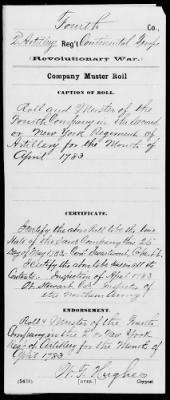 Fourth Co.,
2 Artillery Reg't Continental Troops
(Revolutionary War.)
Company Muster Roll
CAPTION OF ROLL.
Roll and Muster of the
Fourth Company in the Second
or New York Regiment of
Artillery for the Month of
April 1783
CERTIFICATE.
I certify the above Roll to be the true
State of the said Company this 26
Day of May 1783
I certify the above to be
Inspection of Apl 1783
Inspector of
the Northern Army
ENDORSEMENT.
Roll & Muster of the Fourth
Company in the 2 or New York
Reg. of Artillery for the Month of
April 1783
Hughes
(543b) [OVER.] Copyist.